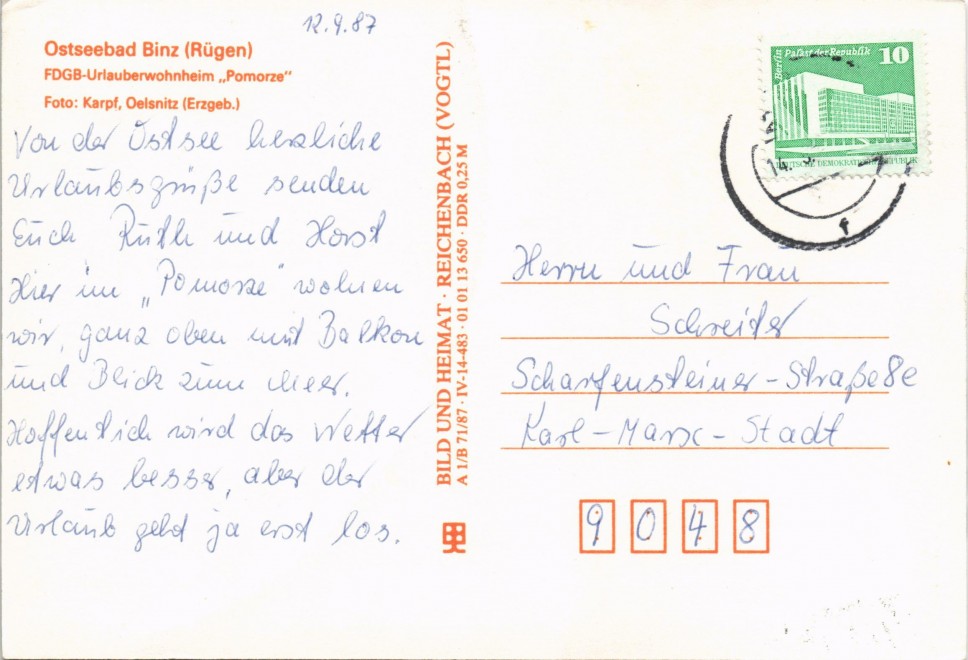 12.9.87
Ostseebad Binz (Rügen)
FDGB-Urlauberwohnheim „Pomorze"
Foto: Karpf, Oelsnitz (Erzgeb.)
Von der Ostsee herzliche
Urlaubsgrüße senden
Euch Ruth und Horst
Hier im „Pomorze" wohnen
wir, ganz oben mit Balkon
und Blick zum Meer.
Hoffentlich wird das Wetter
etwas besser, aber der
Urlaub geht ja erst los.
BILD UND HEIMAT · REICHENBACH (VOGTL)
A 1/B 71/87 · IV-14-483 · 01 01 13 650 · DDR 0,25 M
Berlin Palast der Republik 10
DEUTSCHE DEMOKRATISCHE REPUBLIK
14.
f
Herrn und Frau
Schreiter
Scharfensteiner-Straße 8e
Karl-Marx-Stadt
9048